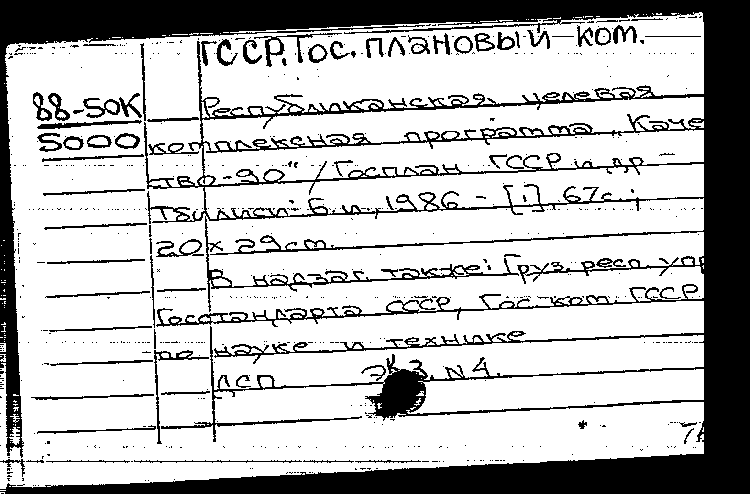 ГССР. Гос. плановый ком.
88-50К
5000
Республиканская целевая
комплексная программа „Каче
ство-90" / Госплан ГССР и др -
Тбилиси: Б.и., 1986 - [1], 67с.;
20 х 29 cm.
В надзаг. также: Груз. респ. упр
Госстандарта СССР, Гос. ком. ГССР
по науке и технике
ДСП Экз. N 4.